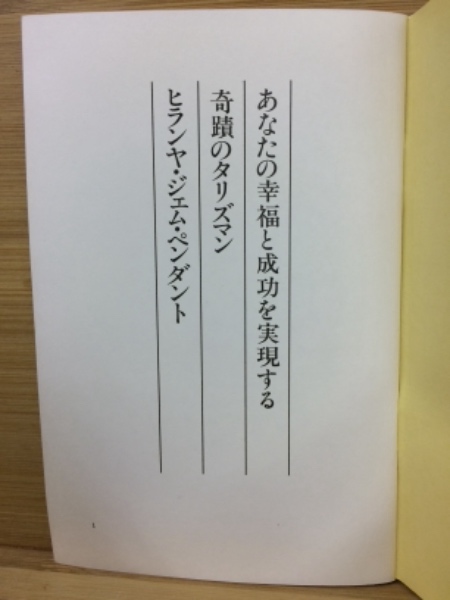 あなたの幸福と成功を実現する
奇蹟のタリズマン
ヒランヤ・ジェム・ペンダント
1